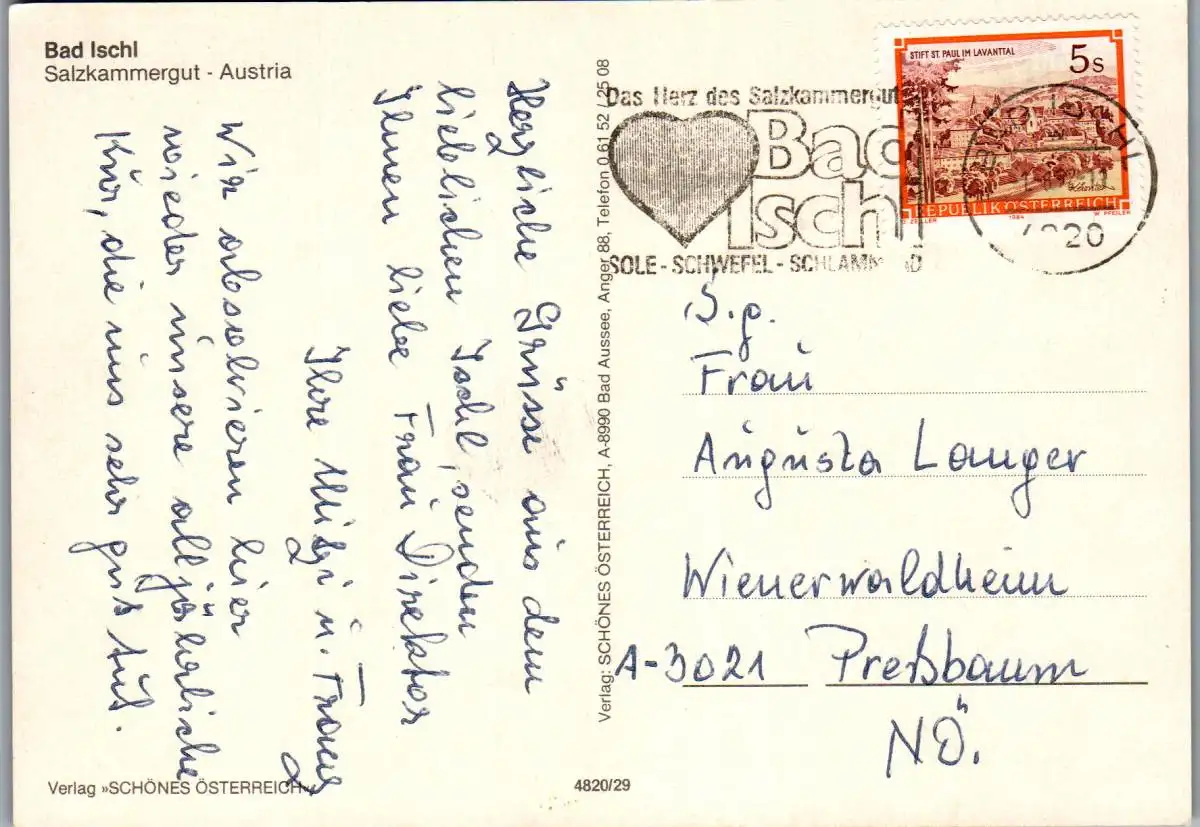 Bad Ischl
Salzkammergut - Austria
Herzliche Grüsse aus dem
lieblichen Ischl, senden
Ihnen liebe Frau Direktor
Ihre Mitzi u. Franz
Wir absolvieren hier
wieder unsere alljährliche
Kur, die uns sehr gut tut.
Verlag »SCHÖNES ÖSTERREICH«
4820/29
Verlag: SCHÖNES ÖSTERREICH, A-8990 Bad Aussee, Anger 88, Telefon 0 61 52 / 25 08
Das Herz des Salzkammergut
Bad
Ischl
SOLE - SCHWEFEL - SCHLAMMBAD
STIFT ST. PAUL IM LAVANTTAL
5 S
REPUBLIK ÖSTERREICH
O. ZEILLER 1984 W. PFEILER
BAD ISCHL
4820
S.g.
Frau
Augusta Langer
Wienerwaldheim
A-3021 Preßbaum
NÖ.